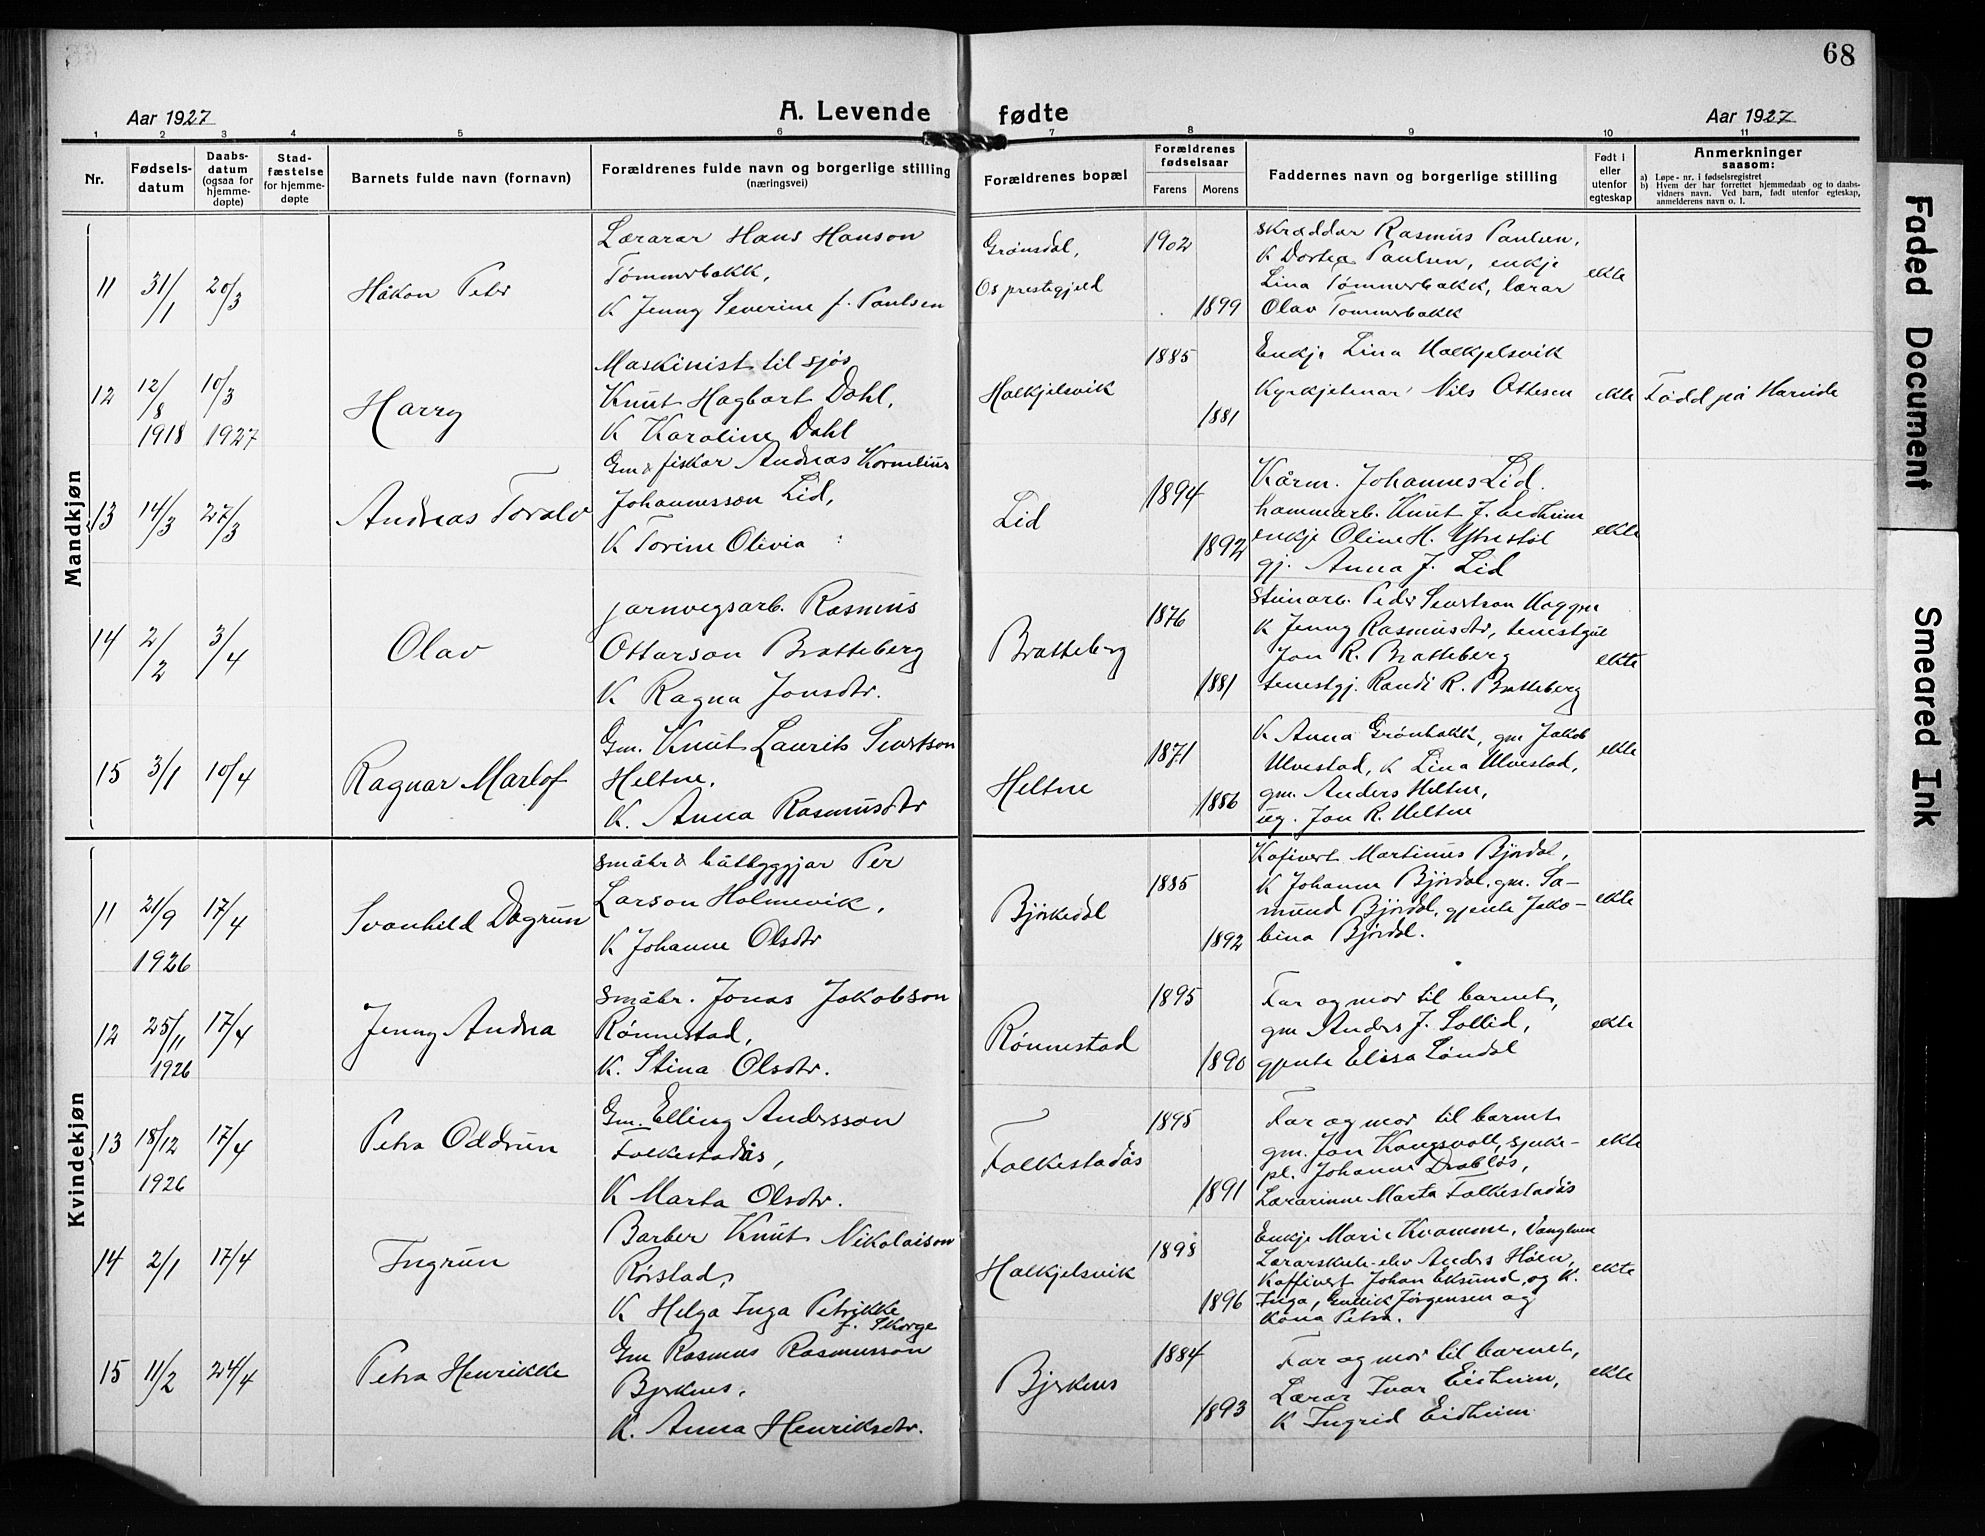 68
Aar 1927
A. Levende fødte
Aar 1927
1 2 3 4 5 6 7 8 9 10 11
Nr.
Fødsels-
datum
Daabs-
datum
(ogsaa for
hjemme-
døpte)
Stad-
fæstelse
for hjemme-
døpte
Barnets fulde navn (fornavn)
Forældrenes fulde navn og borgerlige stilling
(næringsvei)
Forældrenes bopæl
Forældrenes
fødselsaar
Farens Morens
Faddernes navn og borgerlige stilling
Født i
eller
utenfor
egteskap
Anmerkninger
saasom:
a) Løpe-nr. i fødselsregistret
b) Hvem der har forrettet hjemmedaab og to daabs-
vidners navn. Ved barn, født utenfor egteskap,
anmelderens navn o. l.
Mandkjøn
11 31/1 20/3
Håkon Peter
Lærarar Hans Hanson
Tømmerbakk,
K Jenny Severine f. Paulsen
Grønsdal,
Os prestegjeld
1902
1899
skræddar Rasmus Paulsen,
K Dortea Paulsen, enkje
Lina Tømmerbakk, lærar
Olav Tømmerbakk
ekte
12 12/8 1918 10/3 1927
Harry
Maskinist til sjøs
Knut Hagbart Dahl,
K Karoline Dahl
Halkjelsvik
1885
1881
Enkje Lina Halkjelsvik
Kyrkjetenar Nils Ottesen
ekte
Fødd på Hareide
13 14/3 27/3
Andreas Toralv
Gm & fiskar Andreas Kornelius
Johannesson Lid,
K Torine Olivia
Lid
1894
1892
Kårm. Johannes Lid.
hammarb. Knut J. Eidheim
enkje Oline H. Ytrestøl
gj. Anna J. Lid
ekte
14 2/2 3/4
Olav
jarnvegsarb. Rasmus
Ottarson Bratteberg
K Ragna Jonsdtr.
Bratteberg
1876
1881
steinarb. Peder Sivertson
K Jenny Rasmusdtr,
Jon R. Bratteberg
tenestgj. Randi R. Bratteberg
ekte
15 3/1 10/4
Ragnar Marlof
Gm. Knut Laurits Sivertson
Heltne,
K. Anna Rasmusdtr
Heltne
1871
1886
K Anna Grønbakk, gm Jakob
Ulvestad, K Lina Ulvestad,
gm. Anders Heltne,
ug. Jon R. Heltne
ekte
Kvindekjøn
11 21/9 1926 17/4
Svanheld Dagrun
småbr & båtbyggjar Per
Larson Holmevik,
K Johanne Olsdtr
Bjørkedal
1885
1892
Kafivert Martinus Bjørdal,
K Johanne Bjørdal, gm. Sa-
mund Bjørdal, gjente Jako-
bina Bjørdal.
ekte
12 25/11 1926 17/4
Jenny Andrea
småbr. Jonas Jakobson
Rønnestad,
K. Stina Olsdtr.
Rønnestad
1895
1890
Far og mor til barnet,
gm Anders J. Sollid,
gjente Elisa Løndal
ekte
13 18/12 1926 17/4
Petra Oddrun
Gm. Elling Andersson
Folkestadås,
K Marta Olsdtr.
Folkestadås
1895
1891
Far og mor til barnet
gm. Jon Kongsvoll, sjuke-
pl. Johanne Drabløs,
Lærarinne Marta Folkestadås
ekte
14 2/1 17/4
Ingrun
Barber Knut Nikolaison
Rørstad,
K Helga Inga Petrikke
f. Skorge
Halkjelsvik
1898
1896
Enkje Marie Kvamme,
Lærarskule-elev Anders Høen,
Kaffivert Johan Eksund, og K.
Inga, Jørgensen og
Kona Petra.
ekte
15 11/2 24/4
Petra Henrikke
Gm Rasmus Rasmusson
Bjerknes,
K. Anna Henriksdtr.
Bjerknes
1884
1893
Far og mor til barnet,
Lærar Ivar Eidheim,
K Ingrid Eidheim
ekte
Faded Document
Smeared Ink